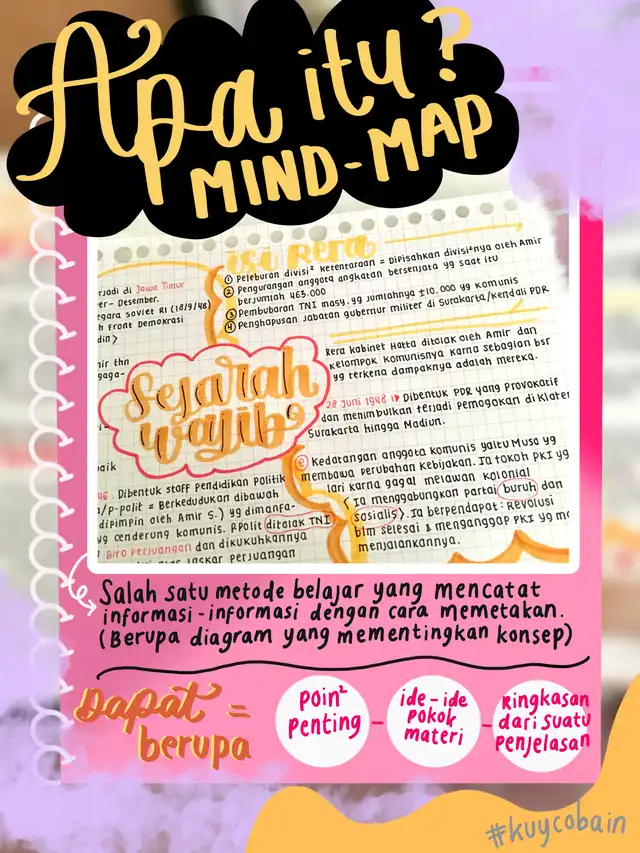 Apa itu?
MIND-MAP
isi Rera
① Peleburan divisi² ketentaraan = Dipisahkan divisi²nya oleh Amir
② Pengurangan anggota angkatan bersenjata yg saat itu
berjumlah 463.000
③ Pembubaran TNI masy. yg jumlahnya ±10.000 yg komunis
④ Penghapusan jabatan gubernur militer di Surakarta/kendali PDR
rjadi di Jawa Timur
er- Desember.
egara soviet RI (18/9/48)
h Front Demokrasi
din>
mir thn
gaga-
Rera kabinet Hatta ditolak oleh Amir dan
kelompok komunisnya karna sebagian bsr
yg terkena dampaknya adalah mereka.
Sejarah
wajib
28 Juni 1948 Dibentuk PDR yang provokatif
dan menimbulkan terjadi pemogokan di Klaten
Surakarta hingga Madiun.
Kedatangan anggota komunis yaitu Muso yg
membawa perubahan kebijakan. Ia tokoh PKI yg
lari karna gagal melawan kolonial
(Ia menggabungkan partai buruh dan
sosialis). Ia berpendapat: Revolusi
blm selesai & menganggap PKI yg ma
menjalankannya.
baik
46: Dibentuk staff pendidikan politik
n/p-polit = Berkedudukan dibawah
dipimpin oleh Amir S.) yg dimanfa-
yg cenderung komunis. P.Polit ditolak TNI
Biro Perjuangan dan dikukuhkannya
laskar perjuangan
Salah satu metode belajar yang mencatat
informasi-informasi dengan cara memetakan.
(Berupa diagram yang mementingkan konsep)
Dapat =
berupa
Poin²
penting
-
ide-ide
pokok
materi
-
Ringkasan
dari suatu
penjelasan
#kuycobain